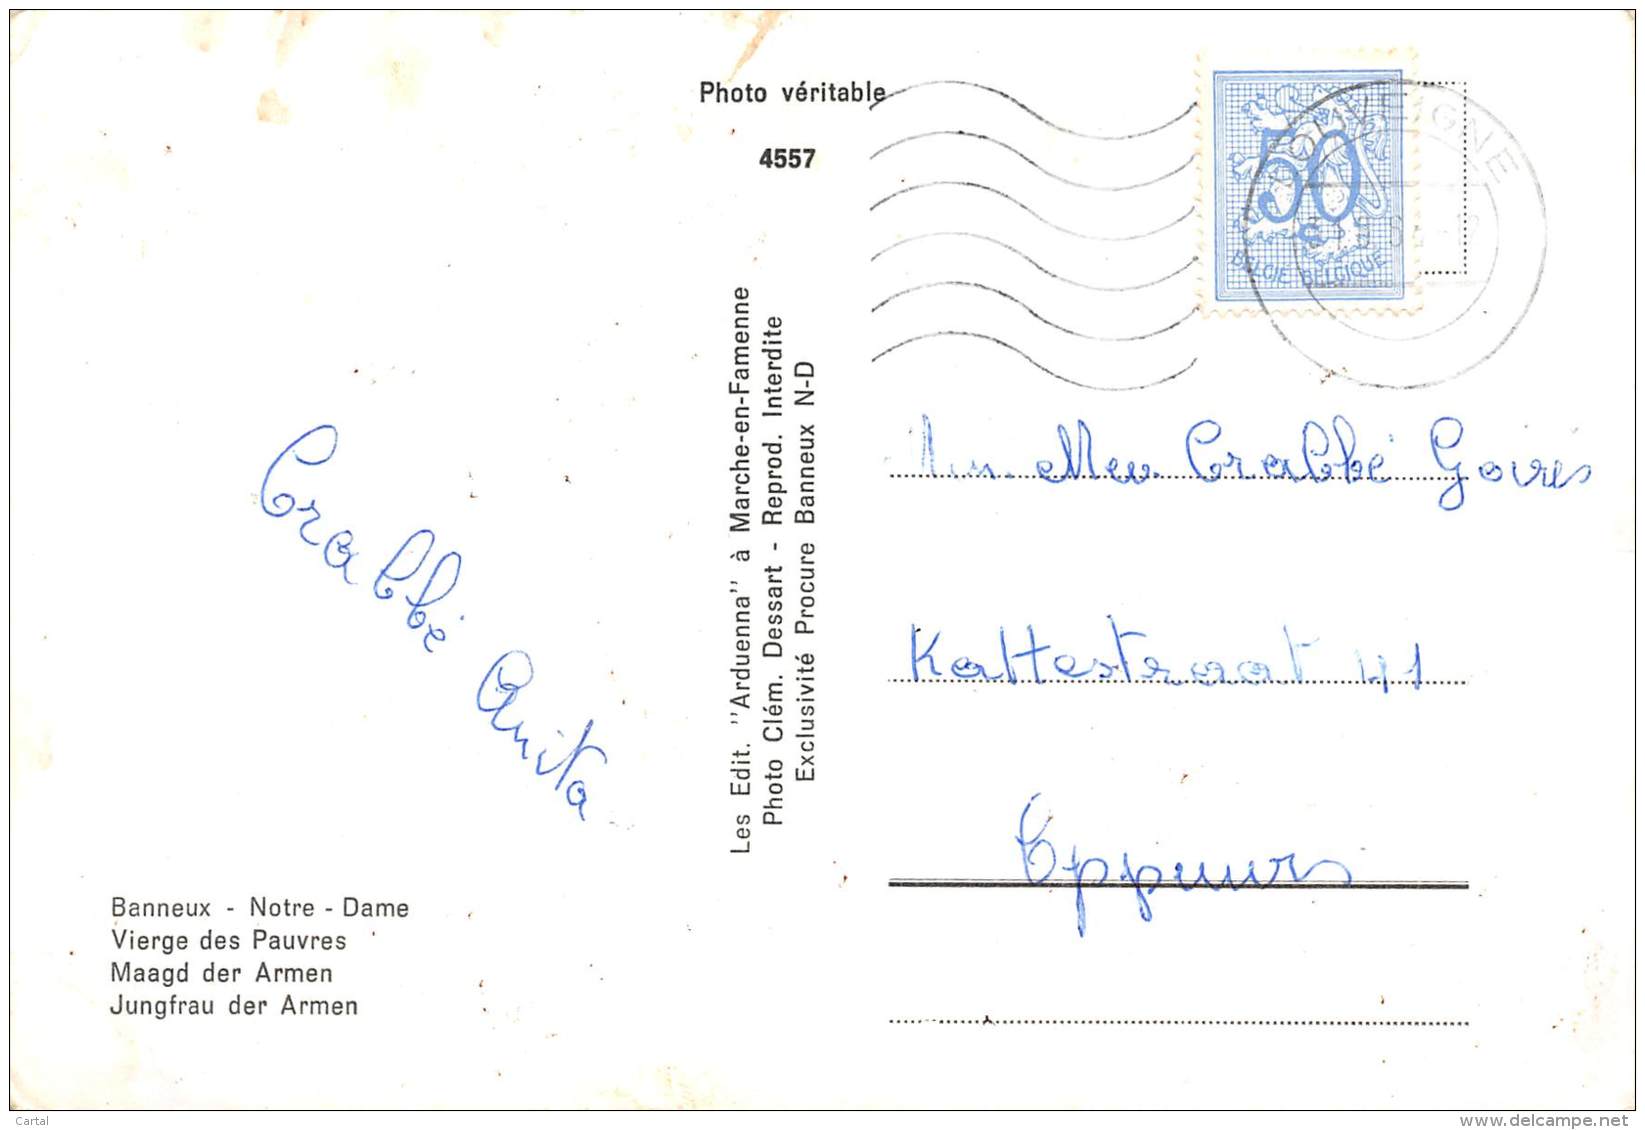 Photo véritable
4557
50
c
BELGIË BELGIQUE
LOUVEIGNE
Les Edit. ''Arduenna'' à Marche-en-Famenne
Photo Clém. Dessart - Reprod. Interdite
Exclusivité Procure Banneux N-D
Crabbé Anita
Mev. Crabbé Govers
Kattestraat 41
Eppeurs
Banneux - Notre - Dame
Vierge des Pauvres
Maagd der Armen
Jungfrau der Armen
Cartal
delcampe.net